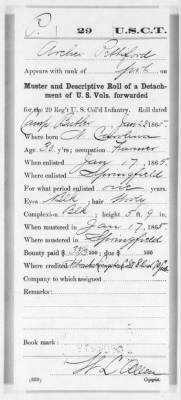 P. 29 U.S.C.T.
Archer Pettiford
Appears with rank of
Muster and Descriptive Roll of a Detach-
ment of U. S. Vols. forwarded
for the 29 Reg't U. S. Col'd Infantry. Roll dated
Camp Butler Jan 23 1865.
Where born N. Carolina
Age 32 y'rs; occupation Farmer
When enlisted Jan 17, 1865
Where enlisted Springfield
For what period enlisted one years.
Eyes Blk; hair Wooly
Complexion Blk; height 5 ft. 9 in.
When mustered in Jan 17, 1865
Where mustered in Springfield
Bounty paid $ 100; due $ 100
Where credited
Company to which assigned
Remarks:
Book mark:
W L Allen
(339) Copyist.